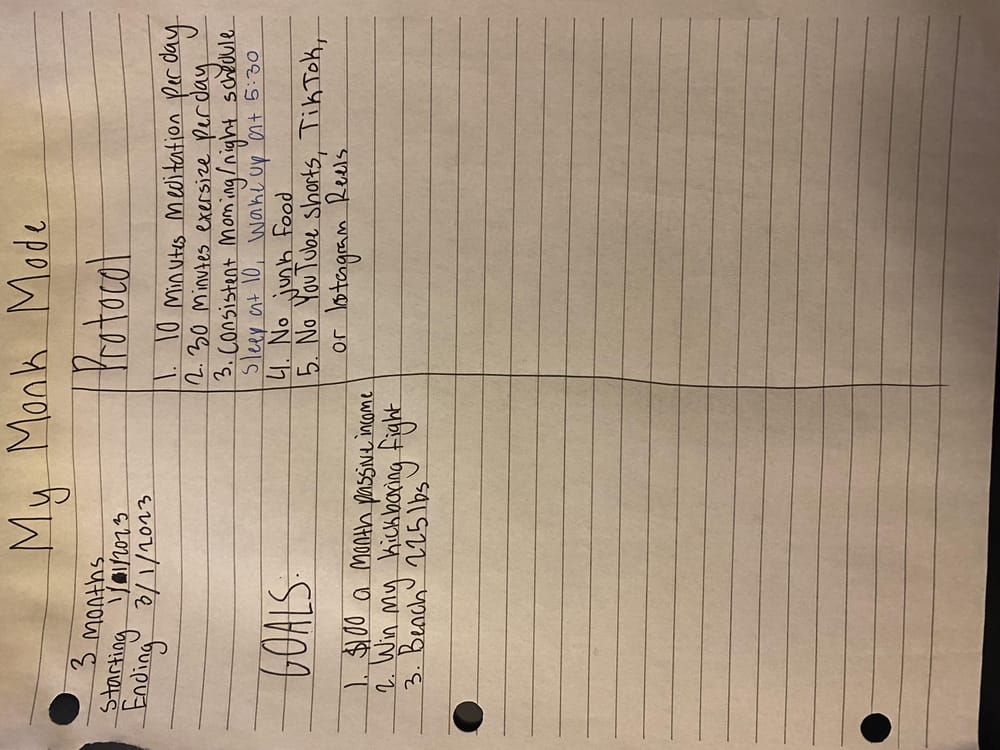 My Monk Mode
3 months
Starting 1/1/2023
Ending 3/1/2023
GOALS:
1. $100 a month passive income
2. Win my kickboxing fight
3. Bench 225 lbs
Protocol
1. 10 minutes meditation per day
2. 30 minutes exersize per day
3. Consistent morning/night schedule
Sleep at 10, Wake up at 5:30
4. No junk food
5. No YouTube shorts, TikTok,
or Instagram Reels